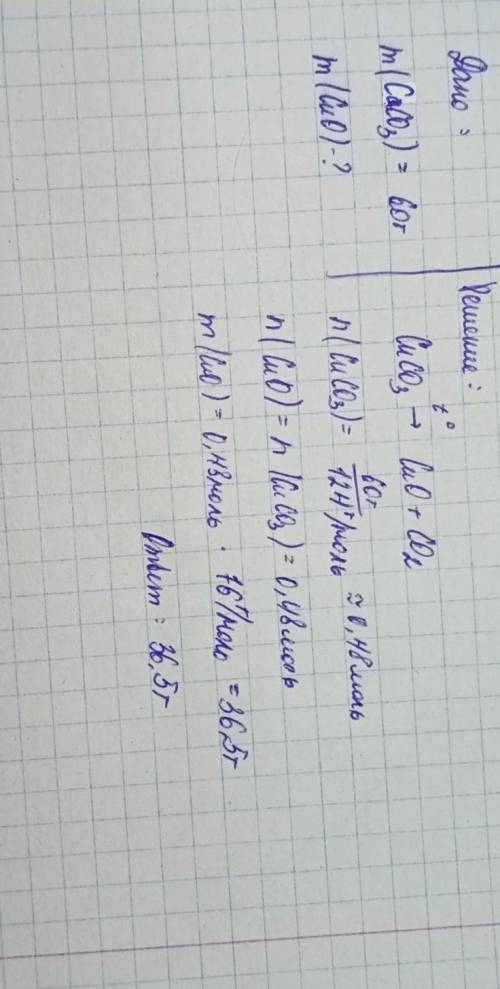 Дано:
m(CuCO₃) = 60г
m(CuO) - ?
Решение:
CuCO₃ →ᵗ° CuO + CO₂
n(CuCO₃) = 60г / 124г/моль ≈ 0,48 моль
n(CuO) = n(CuCO₃) = 0,48 моль
m(CuO) = 0,48 моль · 76г/моль = 36,5г
Ответ: 36,5г